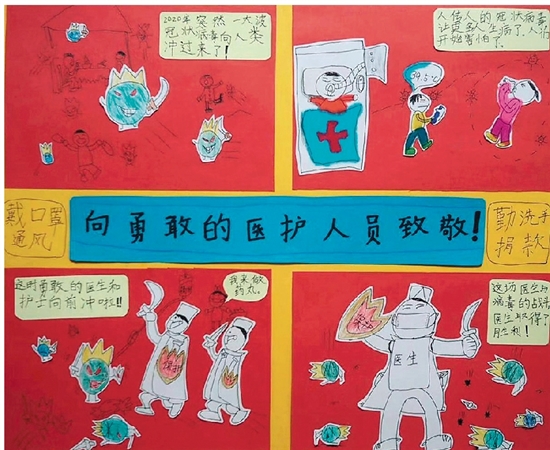 2020年突然一大波
冠状病毒向人类
冲过来了!
人传人的冠状病毒
让更多人生病了,人们
开始害怕了。
39.5℃
戴口罩
通风
向勇敢的医护人员致敬!
勤洗手
捐款
这时勇敢的医生和
护士向前冲啦!!
我来做
药丸。
保护
这场医生与
病毒的战斗
医生取得了
胜利!
医生